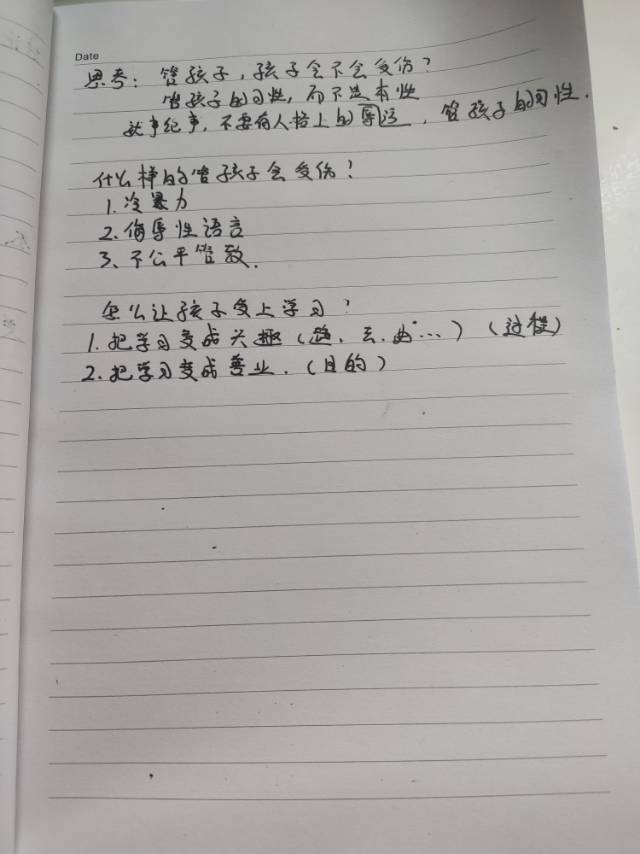 Date
思考：管孩子，孩子会不会受伤？
管孩子的习性，而不是本性
就事纪事，不要有人格上的，管孩子的习性．
什么样的管孩子会受伤？
1.冷暴力
2.侮辱性语言
3、不公平管教．
怎么让孩子爱上学习？
1.把学习变成兴趣（，玄．曲…）（过程）
2.把学习变成善业．（目的）